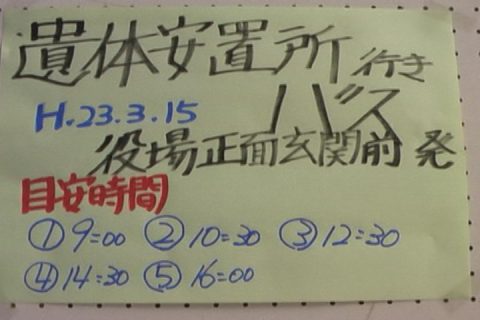 遺体安置所行き
H.23.3.15 バス
役場正面玄関前 発
目安時間
① 9=00 ② 10=30 ③ 12=30
④ 14=30 ⑤ 16=00